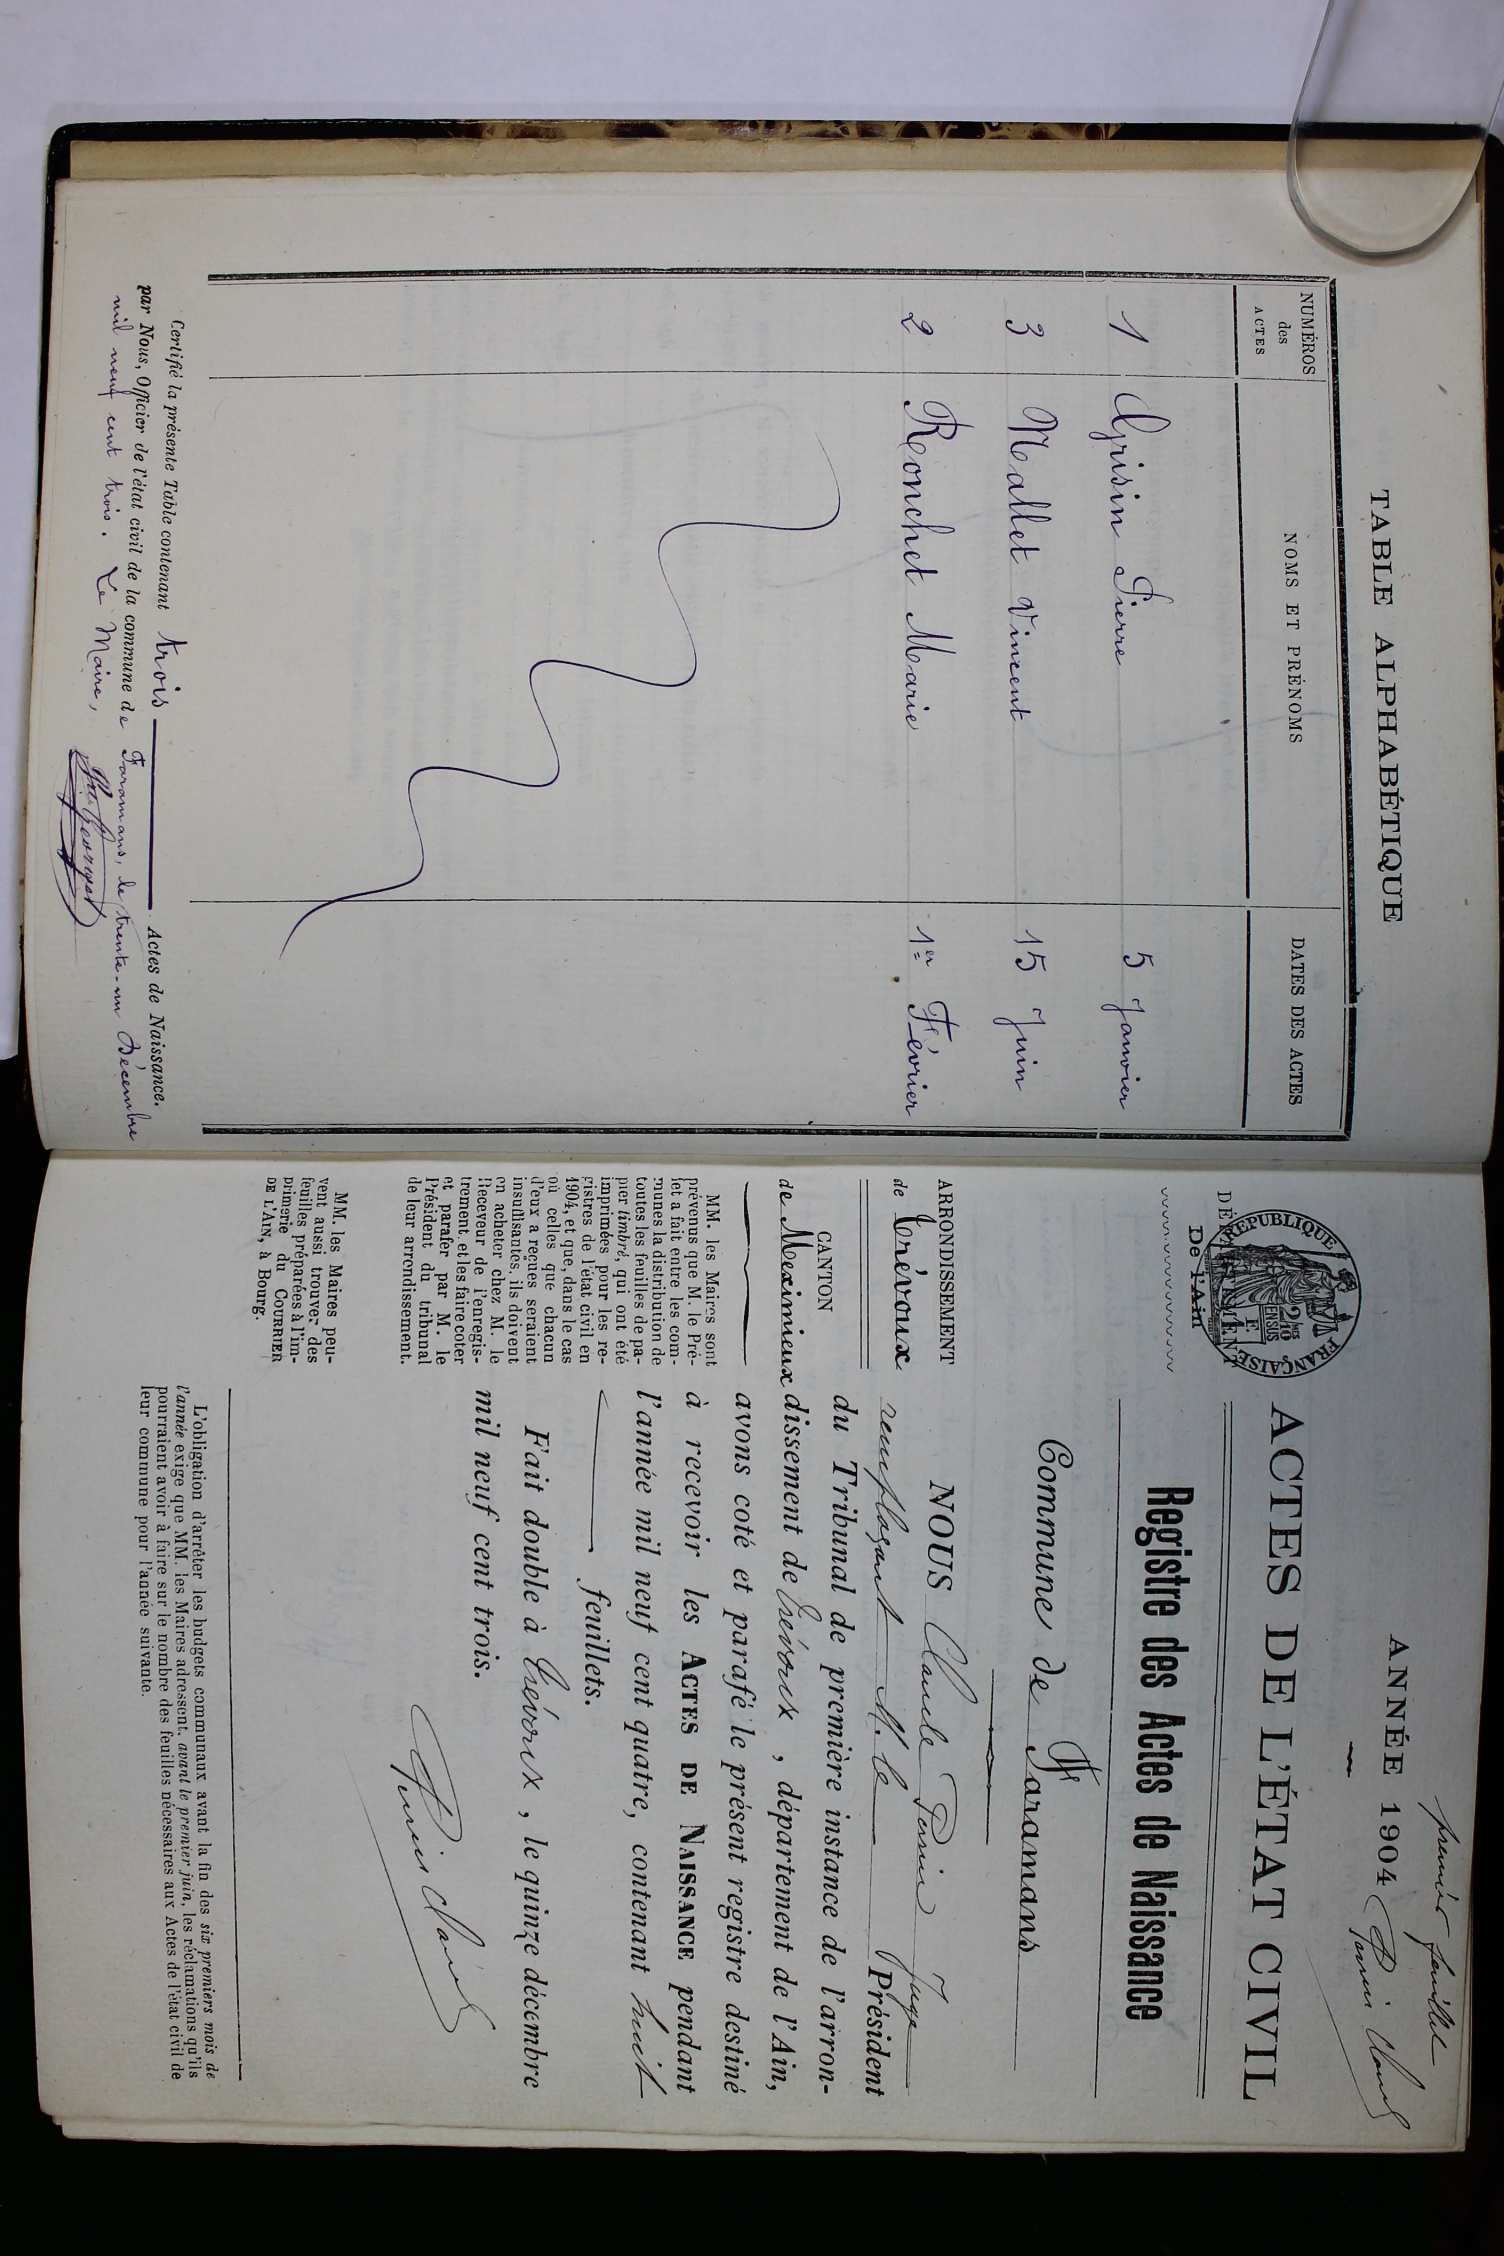 TABLE ALPHABÉTIQUE
NUMÉROS des ACTES NOMS ET PRÉNOMS DATES DES ACTES
1 Grisin Pierre 5 Janvier
3 Mallet Vincent 15 Juin
2 Ronchet Marie 1er Février
Certifié la présente Table contenant trois Actes de Naissance.
par Nous, Officier de l'état civil de la commune de Faramans, le trente-un Décembre
mil neuf cent trois. Le Maire,
premier feuillet
ANNÉE 1904 Perrin Claude
RÉPUBLIQUE FRANÇAISE
De l'Ain
ACTES DE L'ÉTAT CIVIL
Registre des Actes de Naissance
Commune de Faramans
ARRONDISSEMENT
de Trévoux
CANTON
de Meximieux
MM. les Maires sont
prévenus que M. le Pré-
fet a fait entre les com-
munes la distribution de
toutes les feuilles de pa-
pier timbré, qui ont été
imprimées pour les re-
gistres de l'état civil en
1904, et que, dans le cas
où celles que chacun
d'eux a reçues seraient
insuffisantes, ils doivent
en acheter chez M. le
Receveur de l'enregis-
trement et les faire coter
et parafer par M. le
Président du tribunal
de leur arrondissement.
MM. les Maires peu-
vent aussi trouver des
feuilles préparées à l'im-
primerie du COURRIER
DE L'AIN, à Bourg.
NOUS Claude Perrin Juge
remplaçant M. le Président
du Tribunal de première instance de l'arron-
dissement de Trévoux, département de l'Ain,
avons coté et parafé le présent registre destiné
à recevoir les ACTES DE NAISSANCE pendant
l'année mil neuf cent quatre, contenant huit
feuillets.
Fait double à Trévoux, le quinze décembre
mil neuf cent trois.
Perrin Claude
L'obligation d'arrêter les budgets communaux avant la fin des six premiers mois de
l'année exige que MM. les Maires adressent, avant le premier juin, les réclamations qu'ils
pourraient avoir à faire sur le nombre des feuilles nécessaires aux Actes de l'état civil de
leur commune pour l'année suivante.